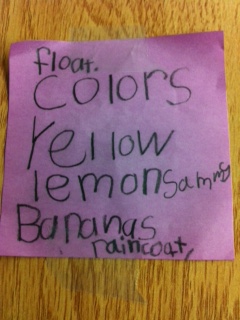 float.
Colors
Yellow
lemon Sammy
Bananas
raincoat,